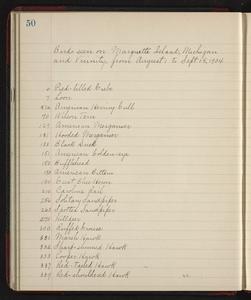 50
Birds seen on Marquette Island, Michigan
and vicinity, from August 1 to Sept. 15, 1904.
6 Pied-billed Grebe
7 Loon
American Herring Gull
70 Wilson Tern
129 American Merganser
131 Hooded Merganser
133 Black Duck
151 American Golden-eye
153 Bufflehead
190 American Bittern
194 Great Blue Heron
214 Carolina Rail
256 Solitary Sandpiper
263 Spotted Sandpiper
273 Killdeer
300 Ruffed Grouse
331 Marsh Hawk
332 Sharp-shinned Hawk
333 Cooper Hawk
337 Red-tailed Hawk
339 Red-shouldered Hawk